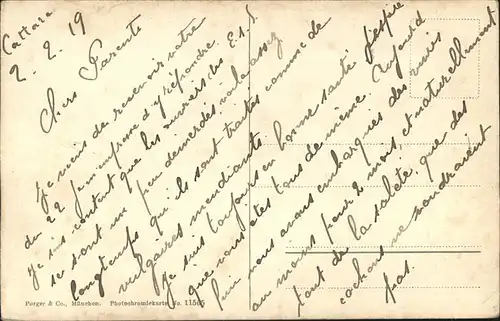 Cattaro
2. 2. 19
Chers Parents
Je viens de recevoir votre
du 22 Je m'empresse d'y répondre.
Je suis content que les ouvriers des E.S.
se sont un peu demerdés, voila assez
longtemps qu'ils sont traités comme de
vulgaires mendiants.
Je suis toujours en bonne santé j'espère
que vous êtes tous de même. Aujourd
hui nous avons embarqués des
au moins pour 2 mois, et naturellement
tout de la saleté, que des
cochons ne voudraient
pas.
Purger & Co., München. Photochromiekarte No. 11565